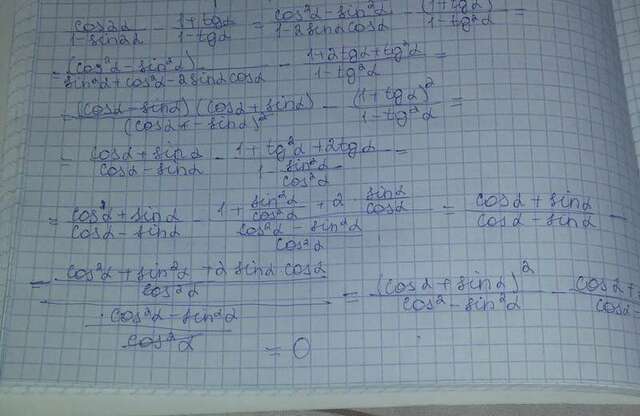 cos2α/(1-sin2α) - (1+tgα)/(1-tgα) = (cos²α-sin²α)/(1-2sinαcosα) - (1+tgα)/(1-tg²α) =
= (cos²α-sin²α)/(sin²α+cos²α-2sinαcosα) - (1+2tgα+tg²α)/(1-tg²α) =
= (cosα-sinα)(cosα+sinα)/(cosα-sinα)² - (1+tgα)²/(1-tg²α) =
- (cosα+sinα)/(cosα-sinα) - (1+tg²α+2tgα)/(1-sin²α/cos²α) =
= (cosα+sinα)/(cosα-sinα) - (1+sin²α/cos²α+2·sinα/cosα)/((cos²α-sin²α)/cos²α) = (cosα+sinα)/(cosα-sinα) -
- ((cos²α+sin²α+2sinα·cosα)/cos²α)/((cos²α-sin²α)/cos²α) = (cosα+sinα)²/(cos²-sin²α) - (cosα+
= 0